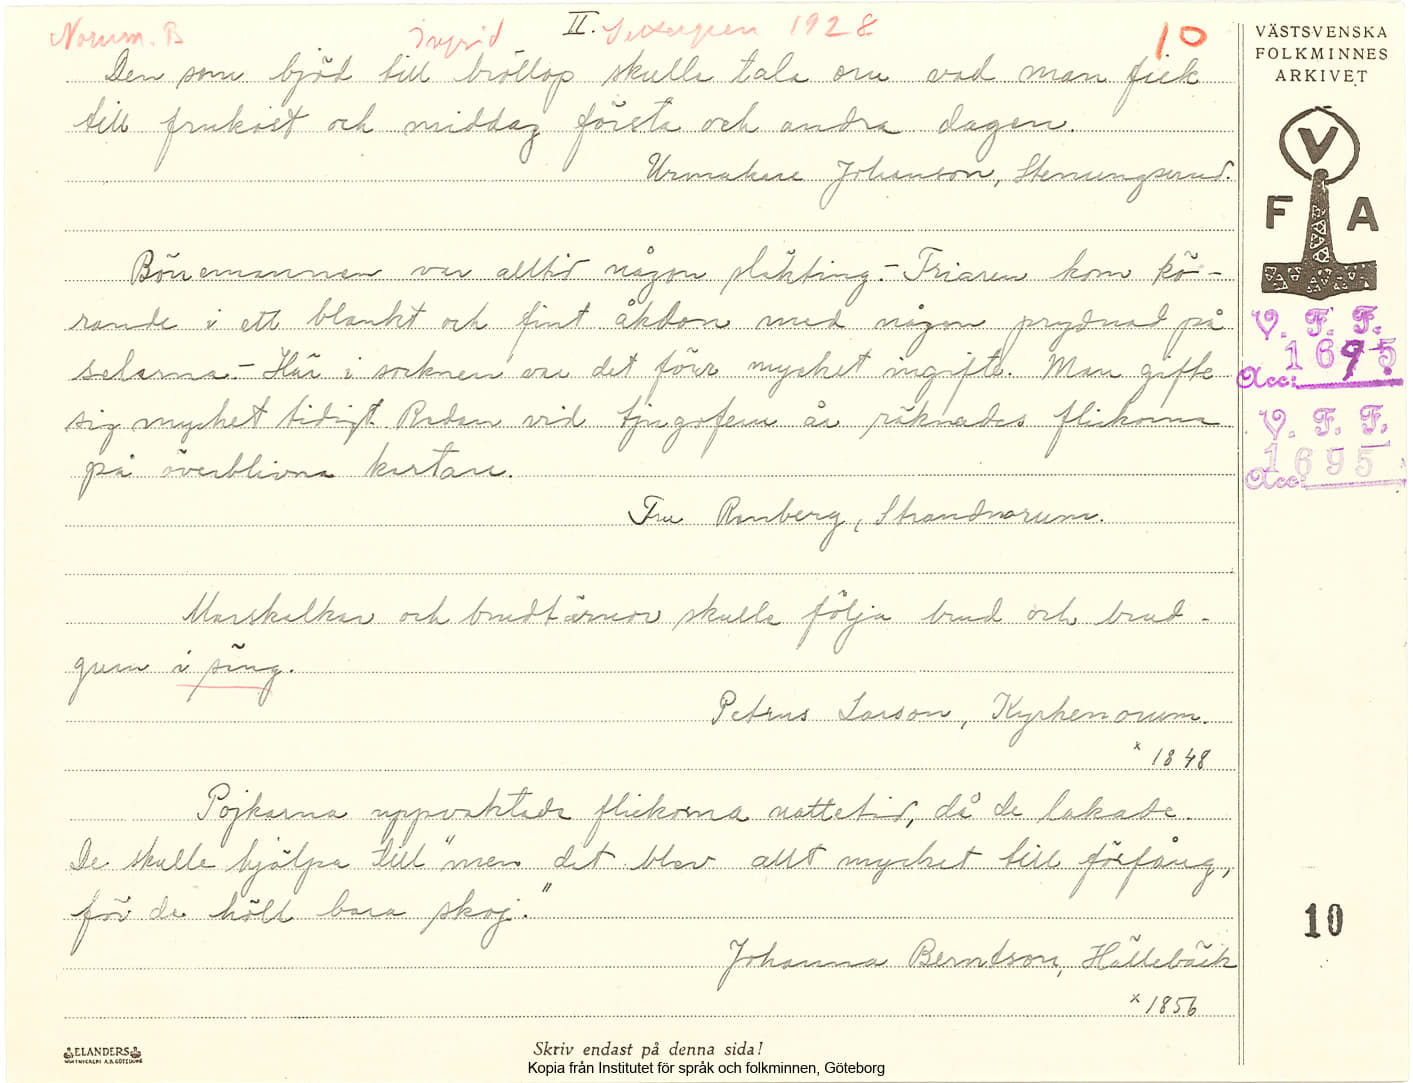 Norum. B Ingrid II. 1928 10
Den som bjöd till bröllop skulle tala om vad man fick
till frukost och middag första och andra dagen.
Urmakare Johanson, Stenungsund.
Bönemannen var alltid någon släkting. - Friaren kom kö-
rande i ett blankt och fint åkdon med någon prydnad på
selarna. - Här i socknen var det förr mycket ingifte. Man gifte
sig mycket tidigt. Redan vid tjugofem år räknades flickorna
på överblivna kartan.
Fru Ranberg, Strandnorum.
Marskalkar och brudtärnor skulle följa brud och brud-
gum i säng.
Petrus Larson, Kyrkenorum.
x 1848
Pojkarna uppvaktade flickorna nattetid, då de lakade.
De skulle hjälpa till "men det blev allt mycket till förfång,
för de höll bara skoj."
Johanna Berntson, Hällebäck
x 1856
VÄSTSVENSKA
FOLKMINNES
ARKIVET
V
F A
V. F. F.
1695
Acc:
V. F. F.
1695
Acc:
10
ELANDERS
Skriv endast på denna sida!
Kopia från Institutet för språk och folkminnen, Göteborg